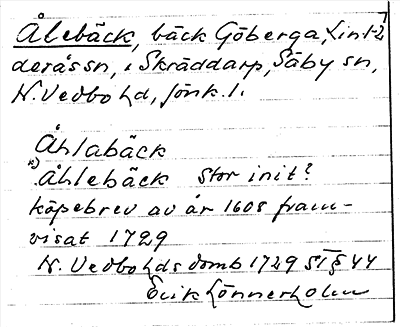 Ålebäck, bäck Göberga, Lin[-]
derås sn, i Skräddarp, Säby sn,
N. Vedbo hd, Jönk. l.
Åhlabäck
x) Åhlebäck stor init?
köpebrev av år 1608 fram-
visat 1729
N. Vedbo hds domb 1729 ST § 44
Erik Lönnerholm